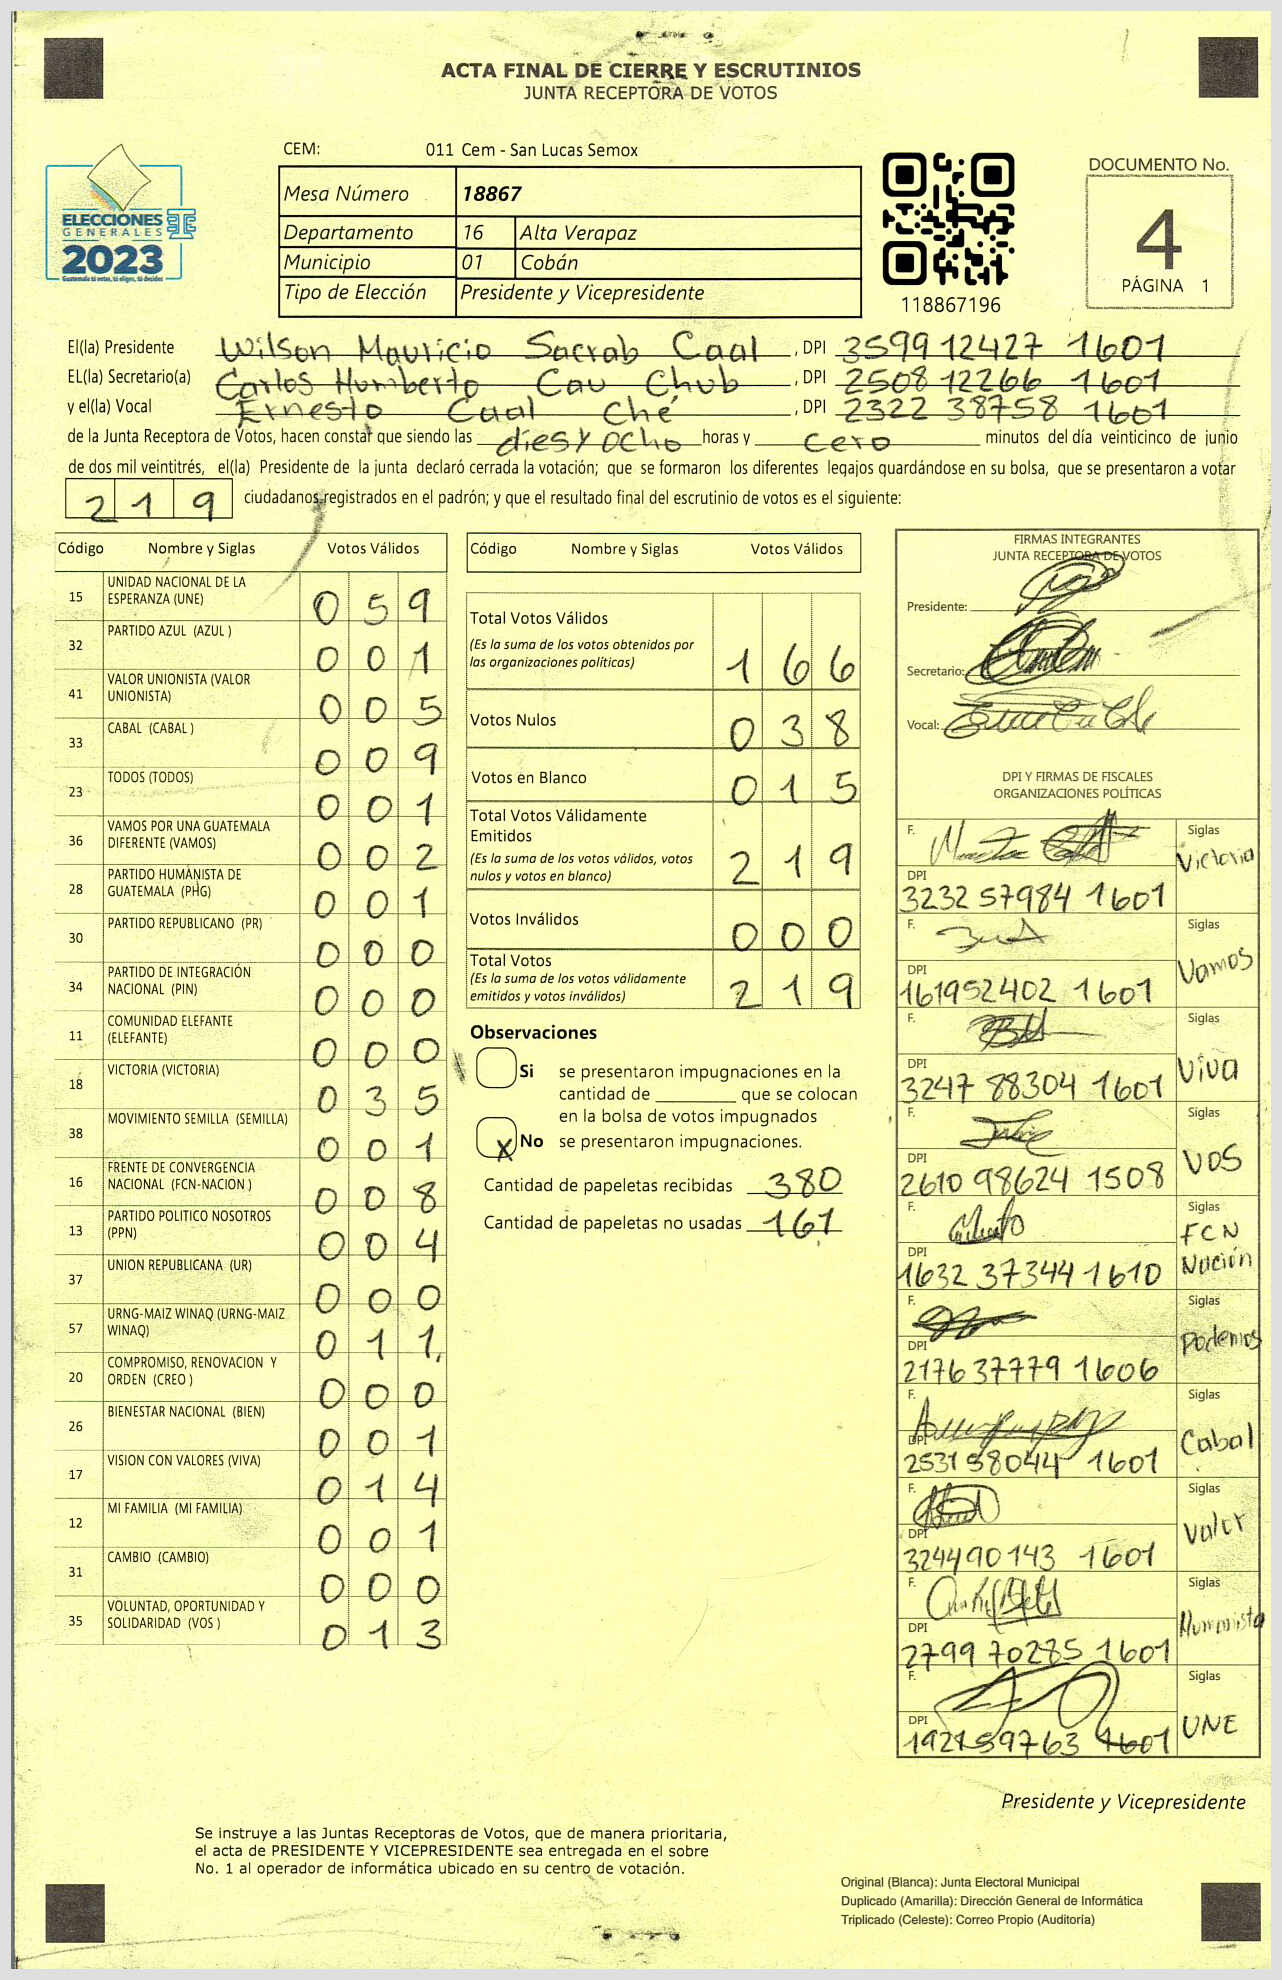 ACTA FINAL DE CIERRE Y ESCRUTINIOS
JUNTA RECEPTORA DE VOTOS
CEM: 011 Cem - San Lucas Semox
Mesa Número 18867
Departamento 16 Alta Verapaz
Municipio 01 Cobán
Tipo de Elección Presidente y Vicepresidente
ELECCIONES
GENERALES
2023
Guatemala tú votas, tú eliges, tú decides
118867196
DOCUMENTO No.
4
PÁGINA 1
El(la) Presidente Wilson Mauricio Sacrab Caal , DPI 3599 12427 1601
EL(la) Secretario(a) Carlos Humberto Cau Chub , DPI 2508 12266 1601
y el(la) Vocal Ernesto Caal Ché , DPI 2322 38758 1601
de la Junta Receptora de Votos, hacen constar que siendo las dies y ocho horas y cero minutos del día veinticinco de junio
de dos mil veintitrés, el(la) Presidente de la junta declaró cerrada la votación; que se formaron los diferentes legajos guardándose en su bolsa, que se presentaron a votar
219 ciudadanos registrados en el padrón; y que el resultado final del escrutinio de votos es el siguiente:
Código Nombre y Siglas Votos Válidos
15 UNIDAD NACIONAL DE LA ESPERANZA (UNE) 059
32 PARTIDO AZUL (AZUL ) 001
41 VALOR UNIONISTA (VALOR UNIONISTA) 005
33 CABAL (CABAL ) 009
23 TODOS (TODOS) 001
36 VAMOS POR UNA GUATEMALA DIFERENTE (VAMOS) 002
28 PARTIDO HUMANISTA DE GUATEMALA (PHG) 001
30 PARTIDO REPUBLICANO (PR) 000
34 PARTIDO DE INTEGRACIÓN NACIONAL (PIN) 000
11 COMUNIDAD ELEFANTE (ELEFANTE) 000
18 VICTORIA (VICTORIA) 035
38 MOVIMIENTO SEMILLA (SEMILLA) 001
16 FRENTE DE CONVERGENCIA NACIONAL (FCN-NACION ) 008
13 PARTIDO POLITICO NOSOTROS (PPN) 004
37 UNION REPUBLICANA (UR) 000
57 URNG-MAIZ WINAQ (URNG-MAIZ WINAQ) 011
20 COMPROMISO, RENOVACION Y ORDEN (CREO ) 000
26 BIENESTAR NACIONAL (BIEN) 001
17 VISION CON VALORES (VIVA) 014
12 MI FAMILIA (MI FAMILIA) 001
31 CAMBIO (CAMBIO) 000
35 VOLUNTAD, OPORTUNIDAD Y SOLIDARIDAD (VOS ) 013
Código Nombre y Siglas Votos Válidos
Total Votos Válidos
(Es la suma de los votos obtenidos por
las organizaciones políticas) 166
Votos Nulos 038
Votos en Blanco 015
Total Votos Válidamente
Emitidos
(Es la suma de los votos válidos, votos
nulos y votos en blanco) 219
Votos Inválidos 000
Total Votos
(Es la suma de los votos válidamente
emitidos y votos inválidos) 219
Observaciones
Si se presentaron impugnaciones en la
cantidad de ________ que se colocan
en la bolsa de votos impugnados
X No se presentaron impugnaciones.
Cantidad de papeletas recibidas 380
Cantidad de papeletas no usadas 161
FIRMAS INTEGRANTES
JUNTA RECEPTORA DE VOTOS
Presidente:
Secretario:
Vocal:
DPI Y FIRMAS DE FISCALES
ORGANIZACIONES POLÍTICAS
F. Siglas Victoria
DPI 3232 57984 1601
F. Siglas Vamos
DPI 161952402 1601
F. Siglas Viva
DPI 3247 88304 1601
F. Siglas VOS
DPI 2610 98624 1508
F. Siglas FCN Nación
DPI 1632 37344 1610
F. Siglas Podemos
DPI 2176 37779 1606
F. Siglas Cabal
DPI 2531 58044 1601
F. Siglas Valor
DPI 324490143 1601
F. Siglas Humanista
DPI 2799 70285 1601
F. Siglas UNE
DPI 1601
Presidente y Vicepresidente
Se instruye a las Juntas Receptoras de Votos, que de manera prioritaria,
el acta de PRESIDENTE Y VICEPRESIDENTE sea entregada en el sobre
No. 1 al operador de informática ubicado en su centro de votación.
Original (Blanca): Junta Electoral Municipal
Duplicado (Amarilla): Dirección General de Informática
Triplicado (Celeste): Correo Propio (Auditoría)